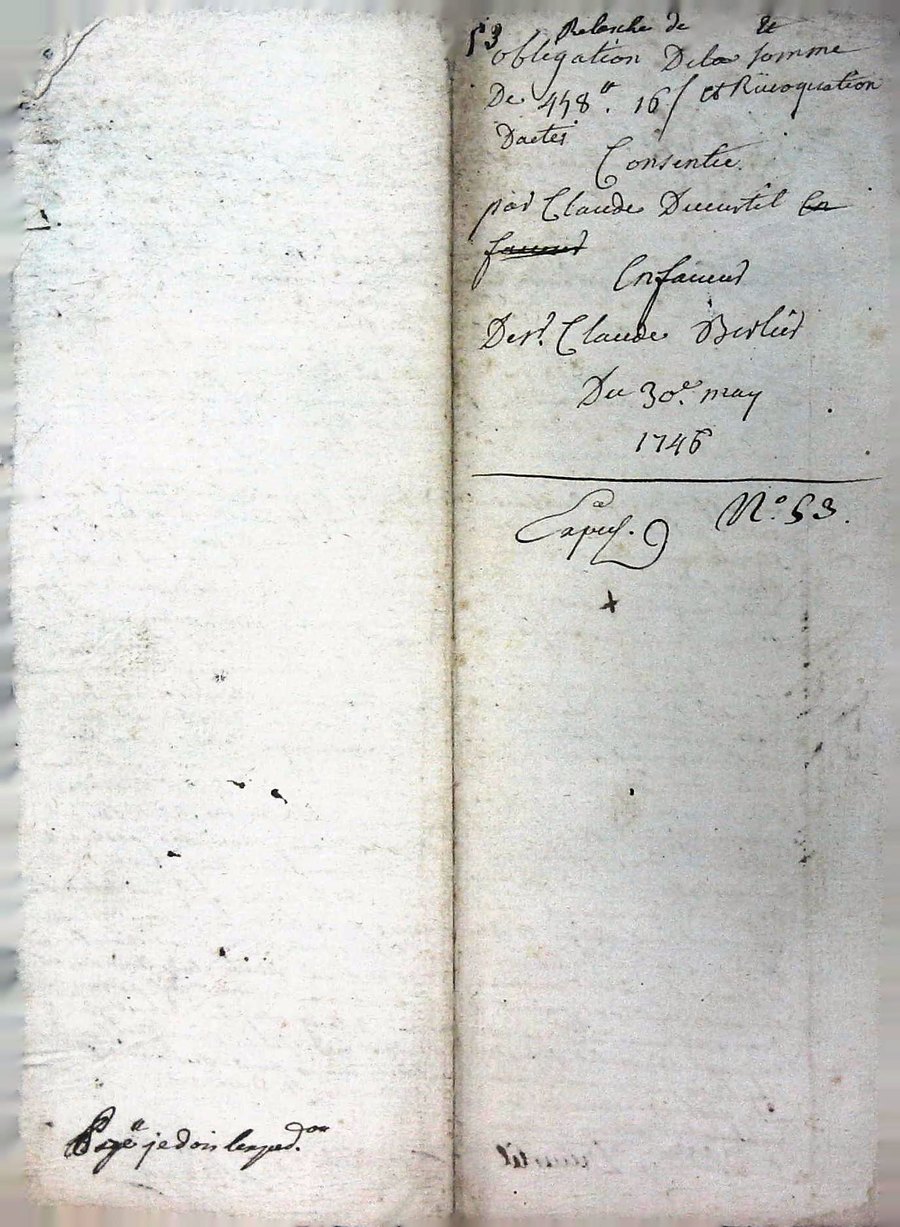 53 Relasche de &
obligation Dela somme
De 448ᵗᵗ. 16ſ et Rèvoquation
Dactes
Consentie
par Claude Ducurtil En
faveur
En faveur
De sʳ. Claude Berlier
Du 30ᵉ. may
1746
Expeᵈ. Nᵒ. 53.
Payéᵃ je dois lexpedᵒⁿ